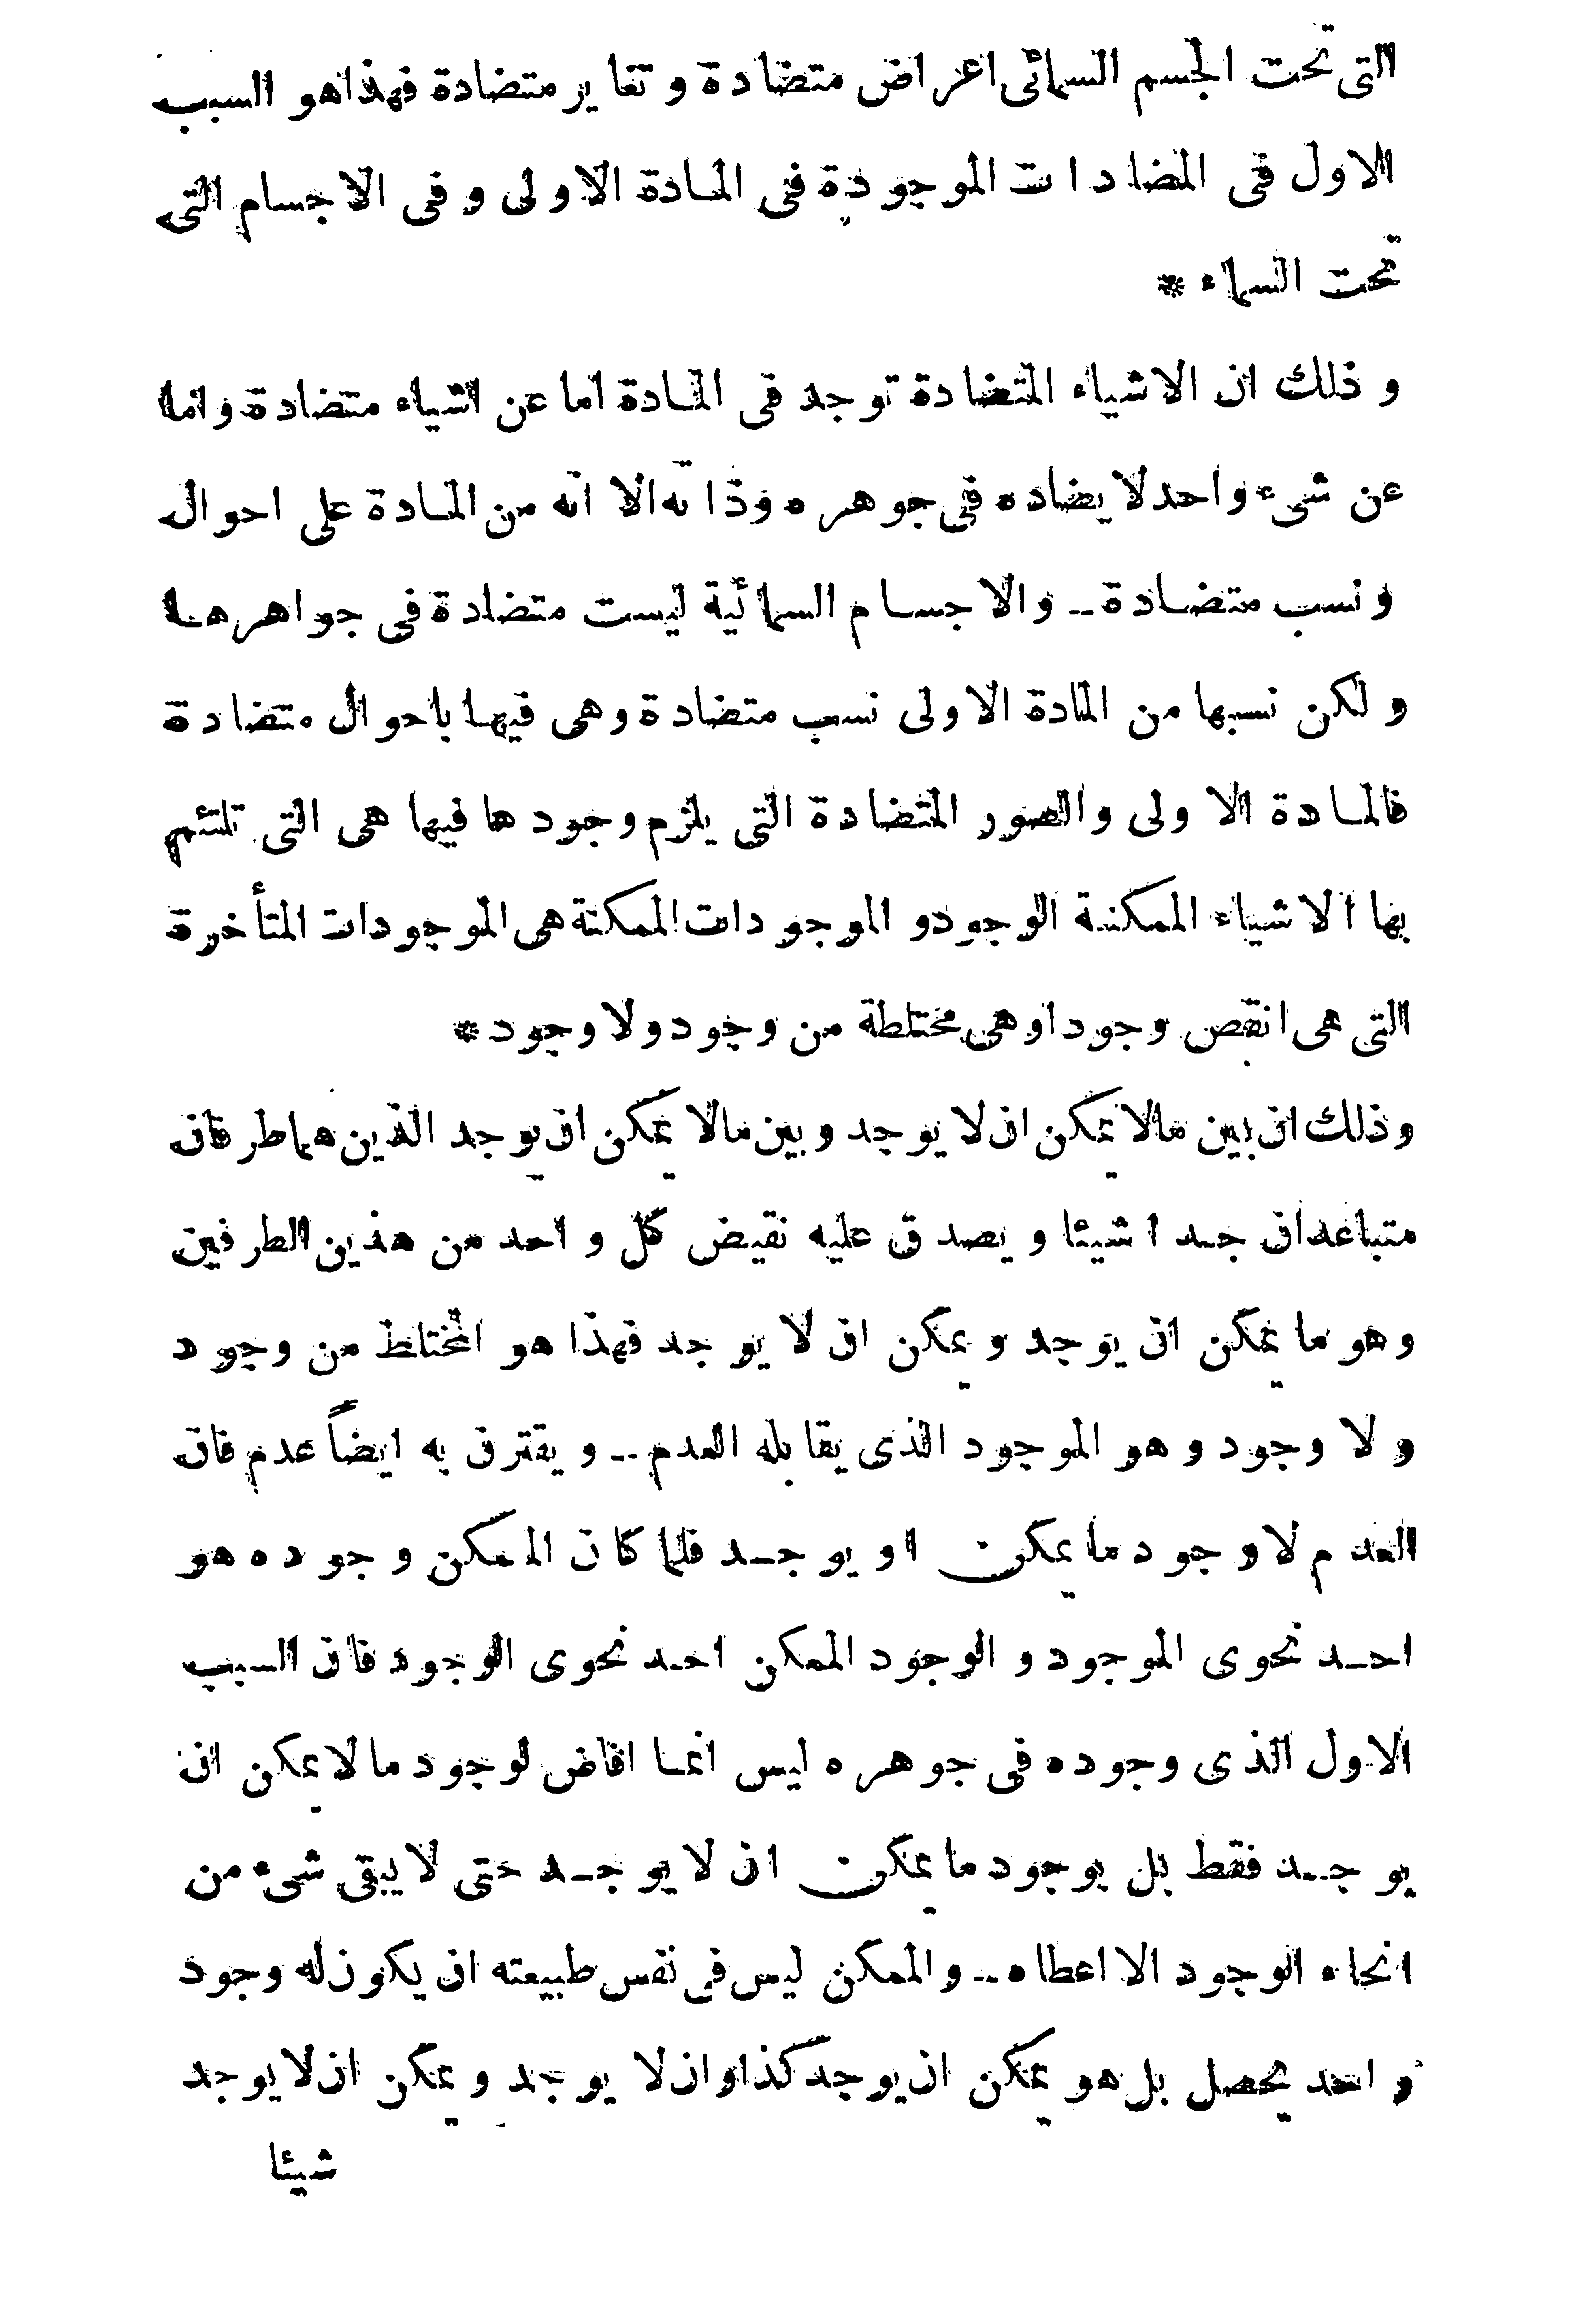 التى تحت الجسم السمائى اعراض متضادة و تغاير متضادة فهذا هو السبب
الاول فى المضادات الموجودة فى المادة الاولى و فى الاجسام التى
تحت السماء *
و ذلك ان الاشياء المتضادة توجد فى المادة اما عن اشياء متضادة و اما
عن شىء واحد لا يضاده فى جوهره و ذاته الا انه من المادة على احوال
و نسب متضادة -- والاجسام السمائية ليست متضادة فى جواهرها
و لكن نسبها من المادة الاولى نسب متضادة و هى فيها باحوال متضادة
فالمادة الاولى والصور المتضادة التى يلزم وجودها فيها هى التى تلتئم
بها الاشياء الممكنة الوجود و الموجودات الممكنة هى الموجودات المتأخرة
التى هى انقص وجودا و هى مختلطة من وجود و لا وجود *
و ذلك ان بين مالا يمكن ان لا يوجد و بين مالا يمكن ان يوجد الذين هما طرفان
متباعدان جدا شيئا و يصدق عليه نقيض كل واحد من هذين الطرفين
و هو ما يمكن ان يوجد و يمكن ان لا يوجد فهذا هو المختلط من وجود
و لا وجود و هو الموجود الذى يقابله العدم -- و يقترن به ايضاً عدم فان
العدم لا وجود ما يمكن او يوجد فلما كان الممكن وجوده هو
احد نحوى الموجود و الوجود الممكن احد نحوى الوجود فان السبب
الاول الذى وجوده فى جوهره ليس انما افاض لوجود ما لا يمكن ان
يوجد فقط بل بوجود ما يمكن ان لا يوجد حتى لا يبقى شىء من
انحاء الوجود الا اعطاه -- والممكن ليس فى نفس طبيعته ان يكون له وجود
واحد يحصل بل هو يمكن ان يوجد كذا و ان لا يوجد و يمكن ان لا يوجد
شيئا